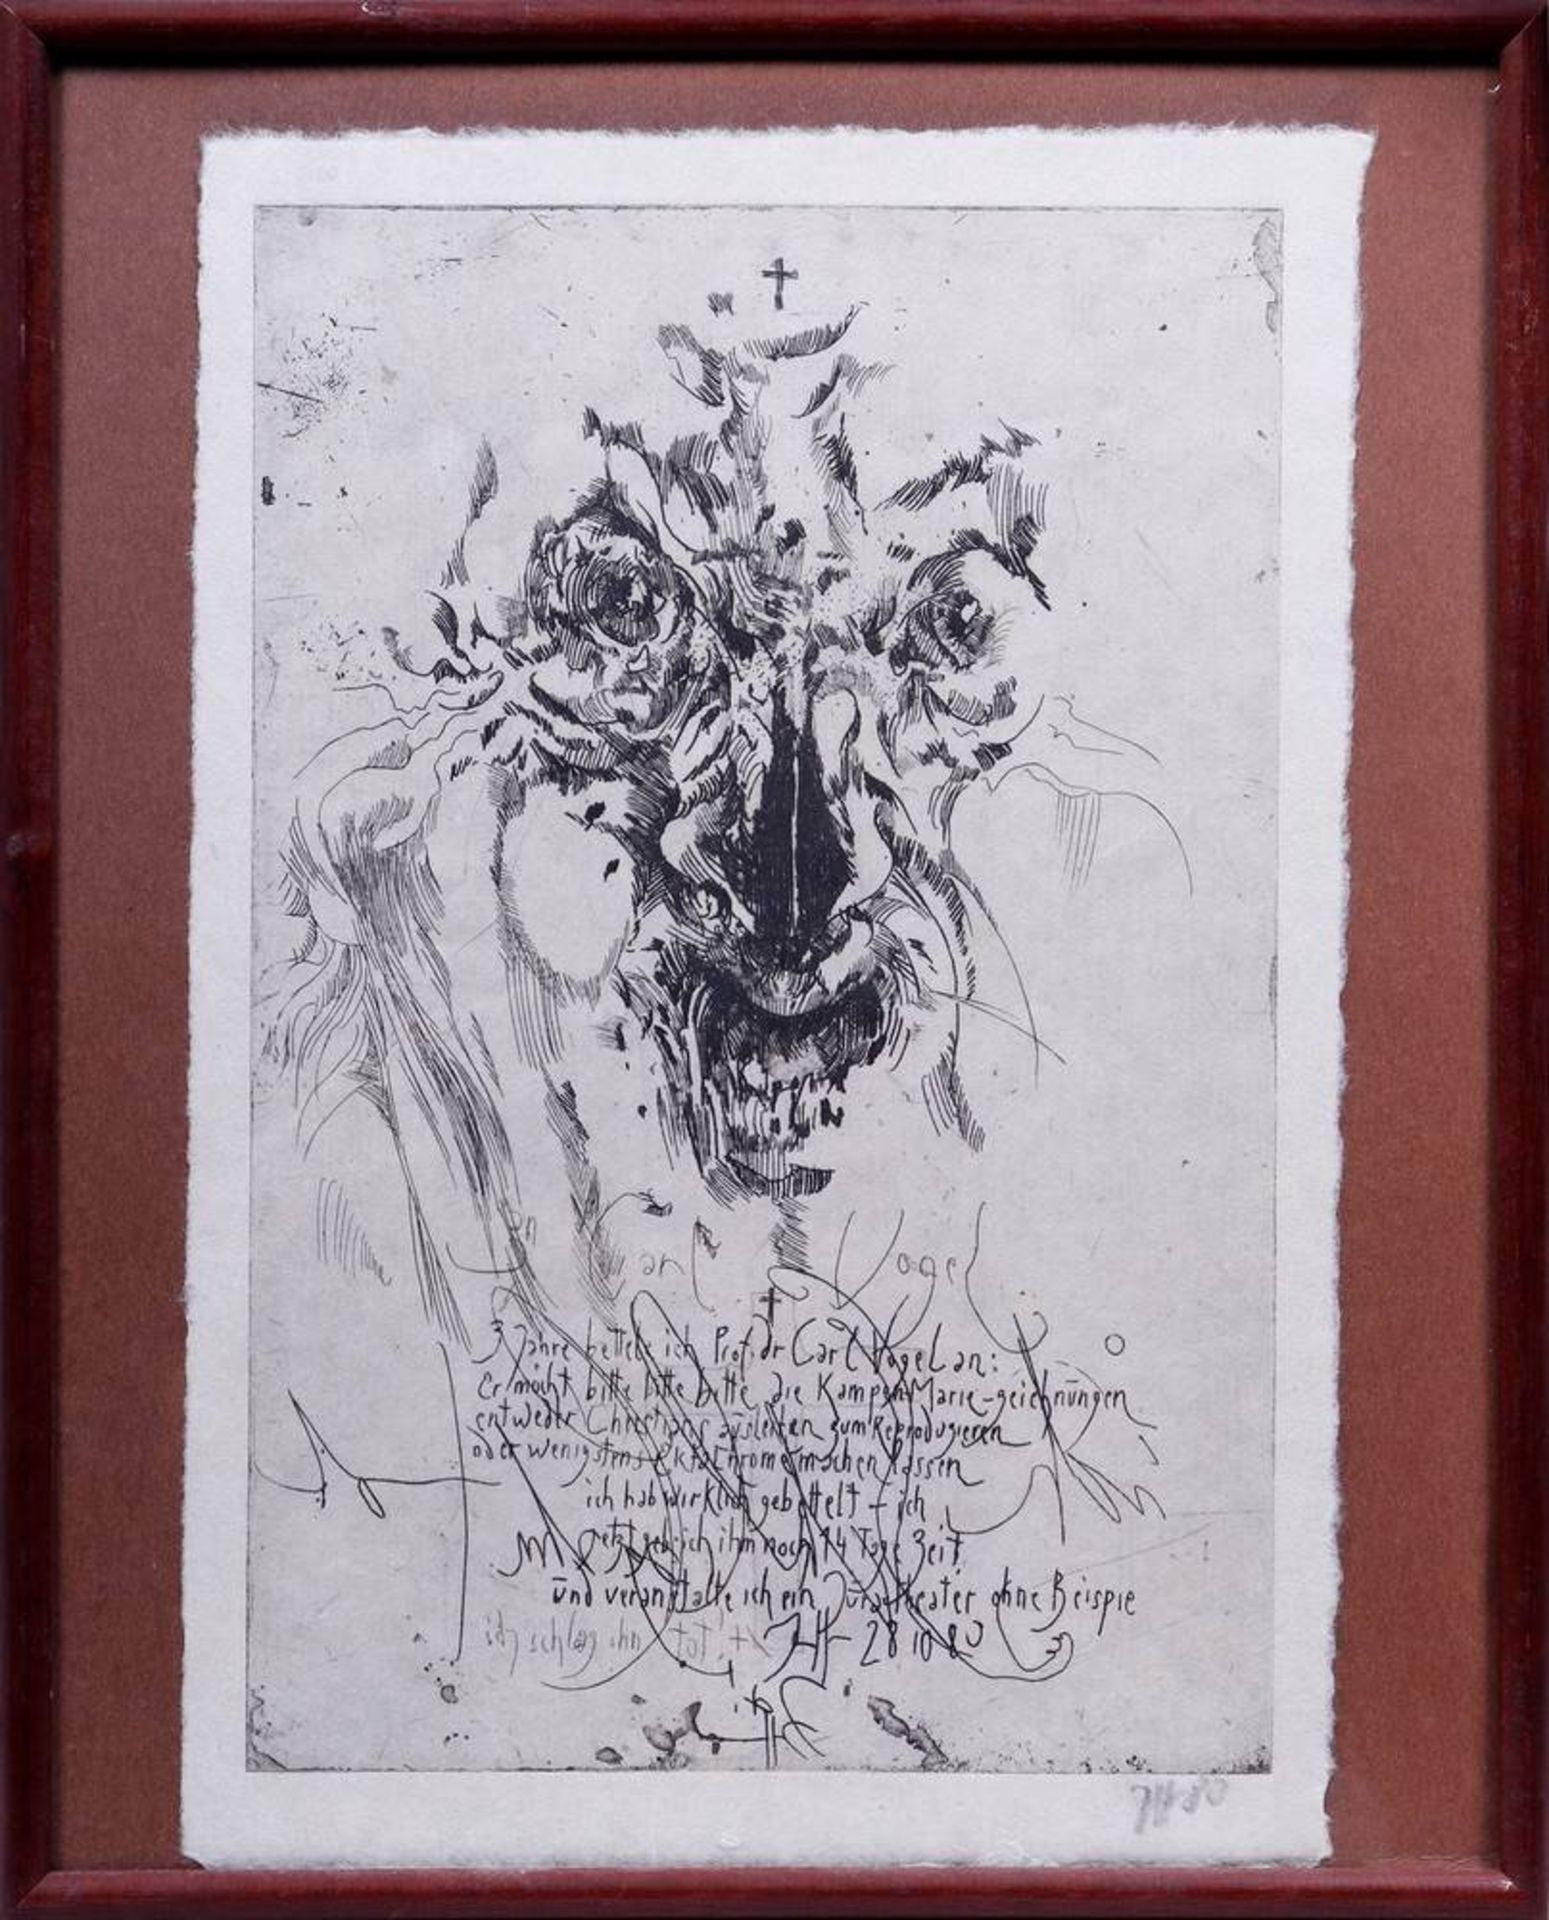 An Carl Vogel
3 Jahre bettele ich Prof. dr Carl Vogel an:
Er möcht bitte bitte bitte die Kampen Marie-zeichnūngen
entweder Christians aūsleihen zum Reproduzieren
oder wenigstens Ektachrome machen lassen
ich hab wirklich gebettelt – ich
jetzt geb ich ihm noch 14 Tage Zeit
ūnd veranstalte ich ein theater ohne Beispie
ich schlag ihn tot! +
JH 28 10 80
JH 80